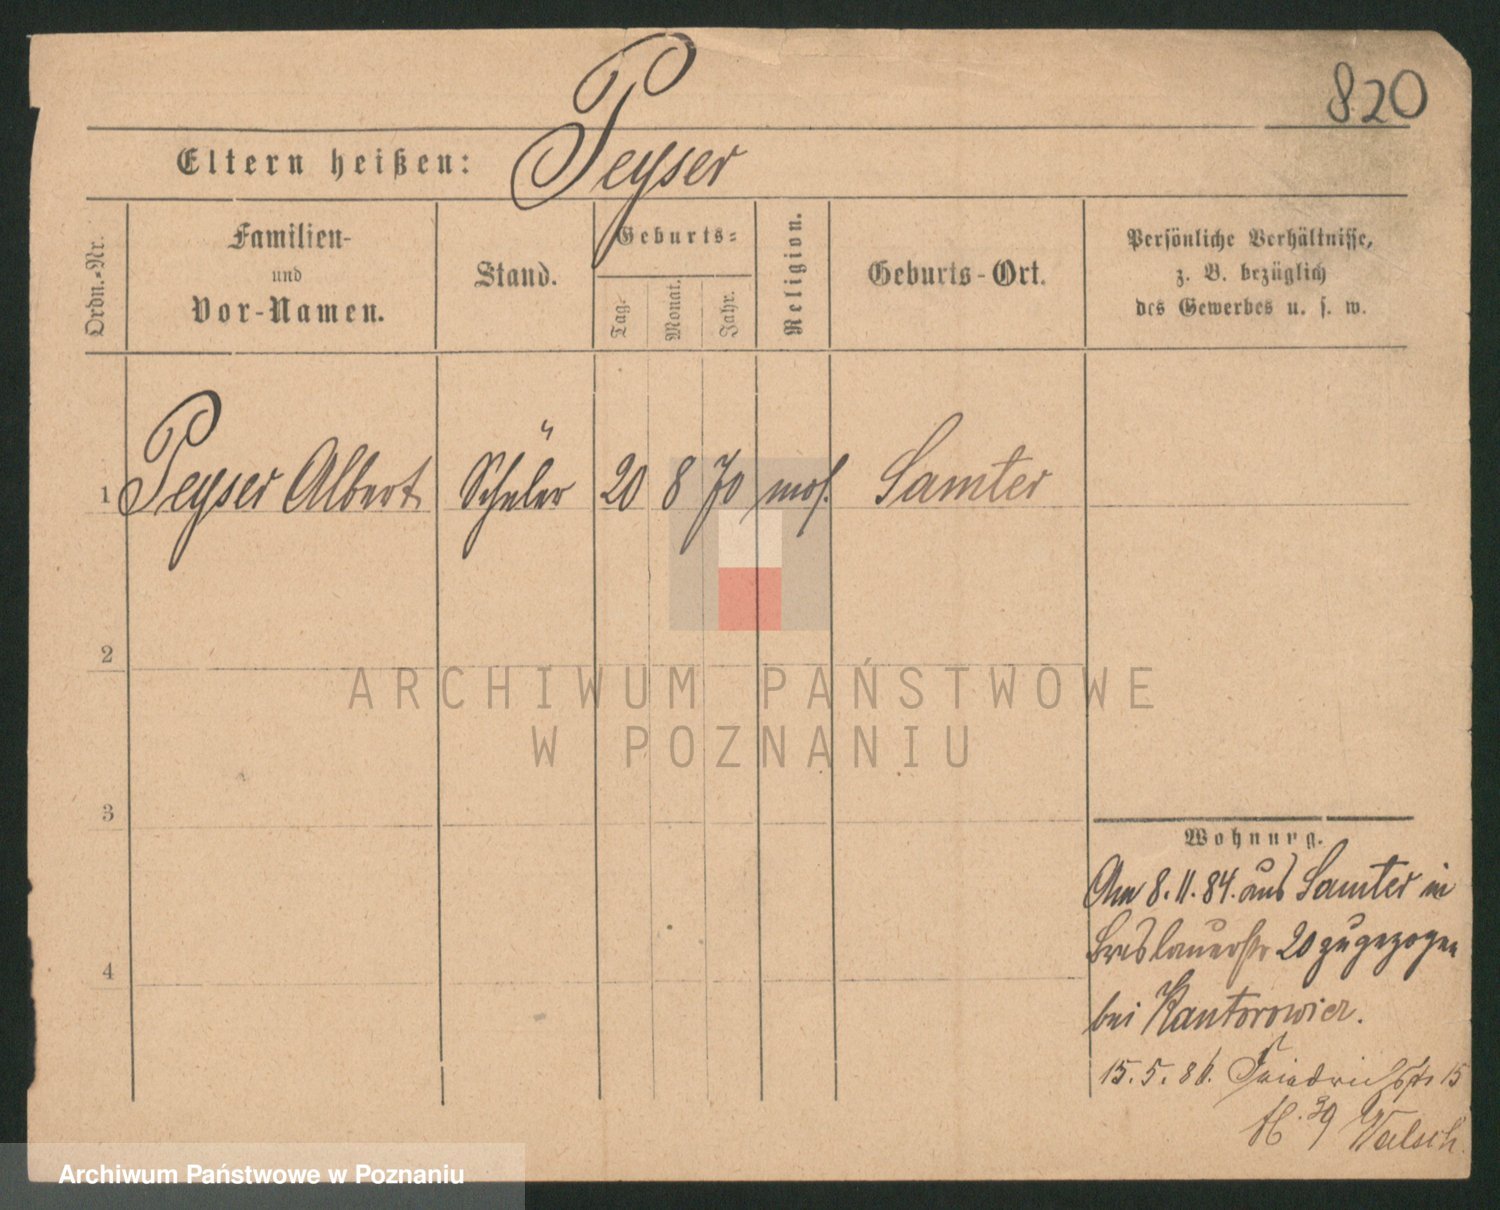 820
Eltern heißen: Peyser
Ordn.-Nr.
Familien-
und
Vor-Namen.
Stand.
Geburts-
Tag.
Monat.
Jahr.
Religion.
Geburts-Ort.
Persönliche Verhältnisse,
z. B. bezüglich
des Gewerbes u. s. w.
1 Peyser Albert Schüler 20 8 70 mos. Samter
2
3
4
ARCHIWUM PAŃSTWOWE
W POZNANIU
Wohnung.
Am 8.11.84. aus Samter in
Breslauerstr 20 zugezogen
bei Kantorowicz.
15.5.86. Friedrichstr 15
39
Archiwum Państwowe w Poznaniu